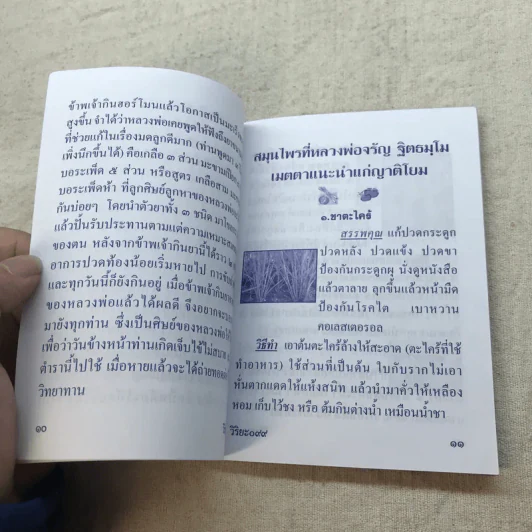 ข้าพเจ้ากินฮอร์โมนแล้วโอกาสเป็นมะเร็ง
สูงขึ้น จำได้ว่าหลวงพ่อเคยพูดให้ฟังถึงยา
ที่ช่วยแก้ในเรื่องมดลูกดีมาก (ท่านพูดมา
เพิ่งนึกขึ้นได้) คือเกลือ ๓ ส่วน มะขามเปียก
บอระเพ็ด ๕ ส่วน หรือสูตร เกลือสาม
บอระเพ็ดห้า ที่ลูกศิษย์ลูกหาของหลวงพ่อ
กันบ่อยๆ โดยนำตัวยาทั้ง ๓ ชนิด มา
แล้วปั้นรับประทานตามแต่ความเหมาะสม
ของตน หลังจากข้าพเจ้ากินยานี้ได้ราว
อาการปวดท้องน้อยเริ่มหายไป
และทุกวันนี้ก็ยังกินอยู่ เมื่อข้าพเจ้ากิน
ของหลวงพ่อแล้วได้ผลดี จึงอยาก
มายังทุกท่าน ซึ่งเป็นศิษย์ของหลวงพ่อ
เพื่อว่าวันข้างหน้าท่านเกิดเจ็บไข้ไม่สบาย
ตำรานี้ไปใช้ เมื่อหายแล้วจะได้ถ่ายทอด
วิทยาทาน
๑๐
สมุนไพรที่หลวงพ่อจรัญ ฐิตธมฺโม
เมตตาแนะนำแก่ญาติโยม
๑.ชาตะไคร้
สรรพคุณ แก้ปวดกระดูก
ปวดหลัง ปวดแข้ง ปวดขา
ป้องกันกระดูกผุ นั่งดูหนังสือ
แล้วตาลาย ลุกขึ้นแล้วหน้ามืด
ป้องกันโรคไต เบาหวาน
คอเลสเตอรอล
วิธีทำ เอาต้นตะไคร้ล้างให้สะอาด (ตะไคร้ที่ใช้
ทำอาหาร) ใช้ส่วนที่เป็นต้น ใบกับรากไม่เอา
หั่นตากแดดให้แห้งสนิท แล้วนำมาคั่วให้เหลือง
หอม เก็บไว้ชง หรือ ต้มกินต่างน้ำ เหมือนน้ำชา
วิริยะ๐๙๙
๑๑